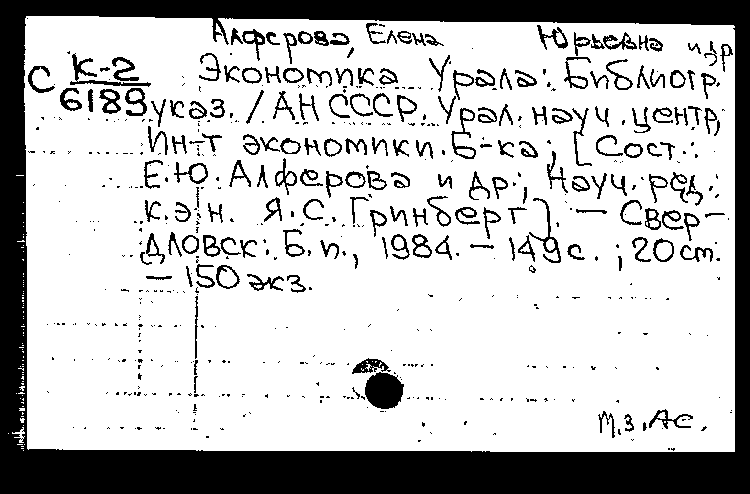 Алферова, Елена Юрьевна и др
С К-2 Экономика Урала: Библиогр.
6189 указ. / АН СССР. Урал. науч. центр,
Ин-т экономики. Б-ка; [Сост.:
Е.Ю. Алферова и др.; Науч. ред.:
к.э.н. Я.С. Гринберг]. — Свер-
дловск: Б.п., 1984. — 149с. ; 20 cm.
— 150 экз.
М.З. АС.